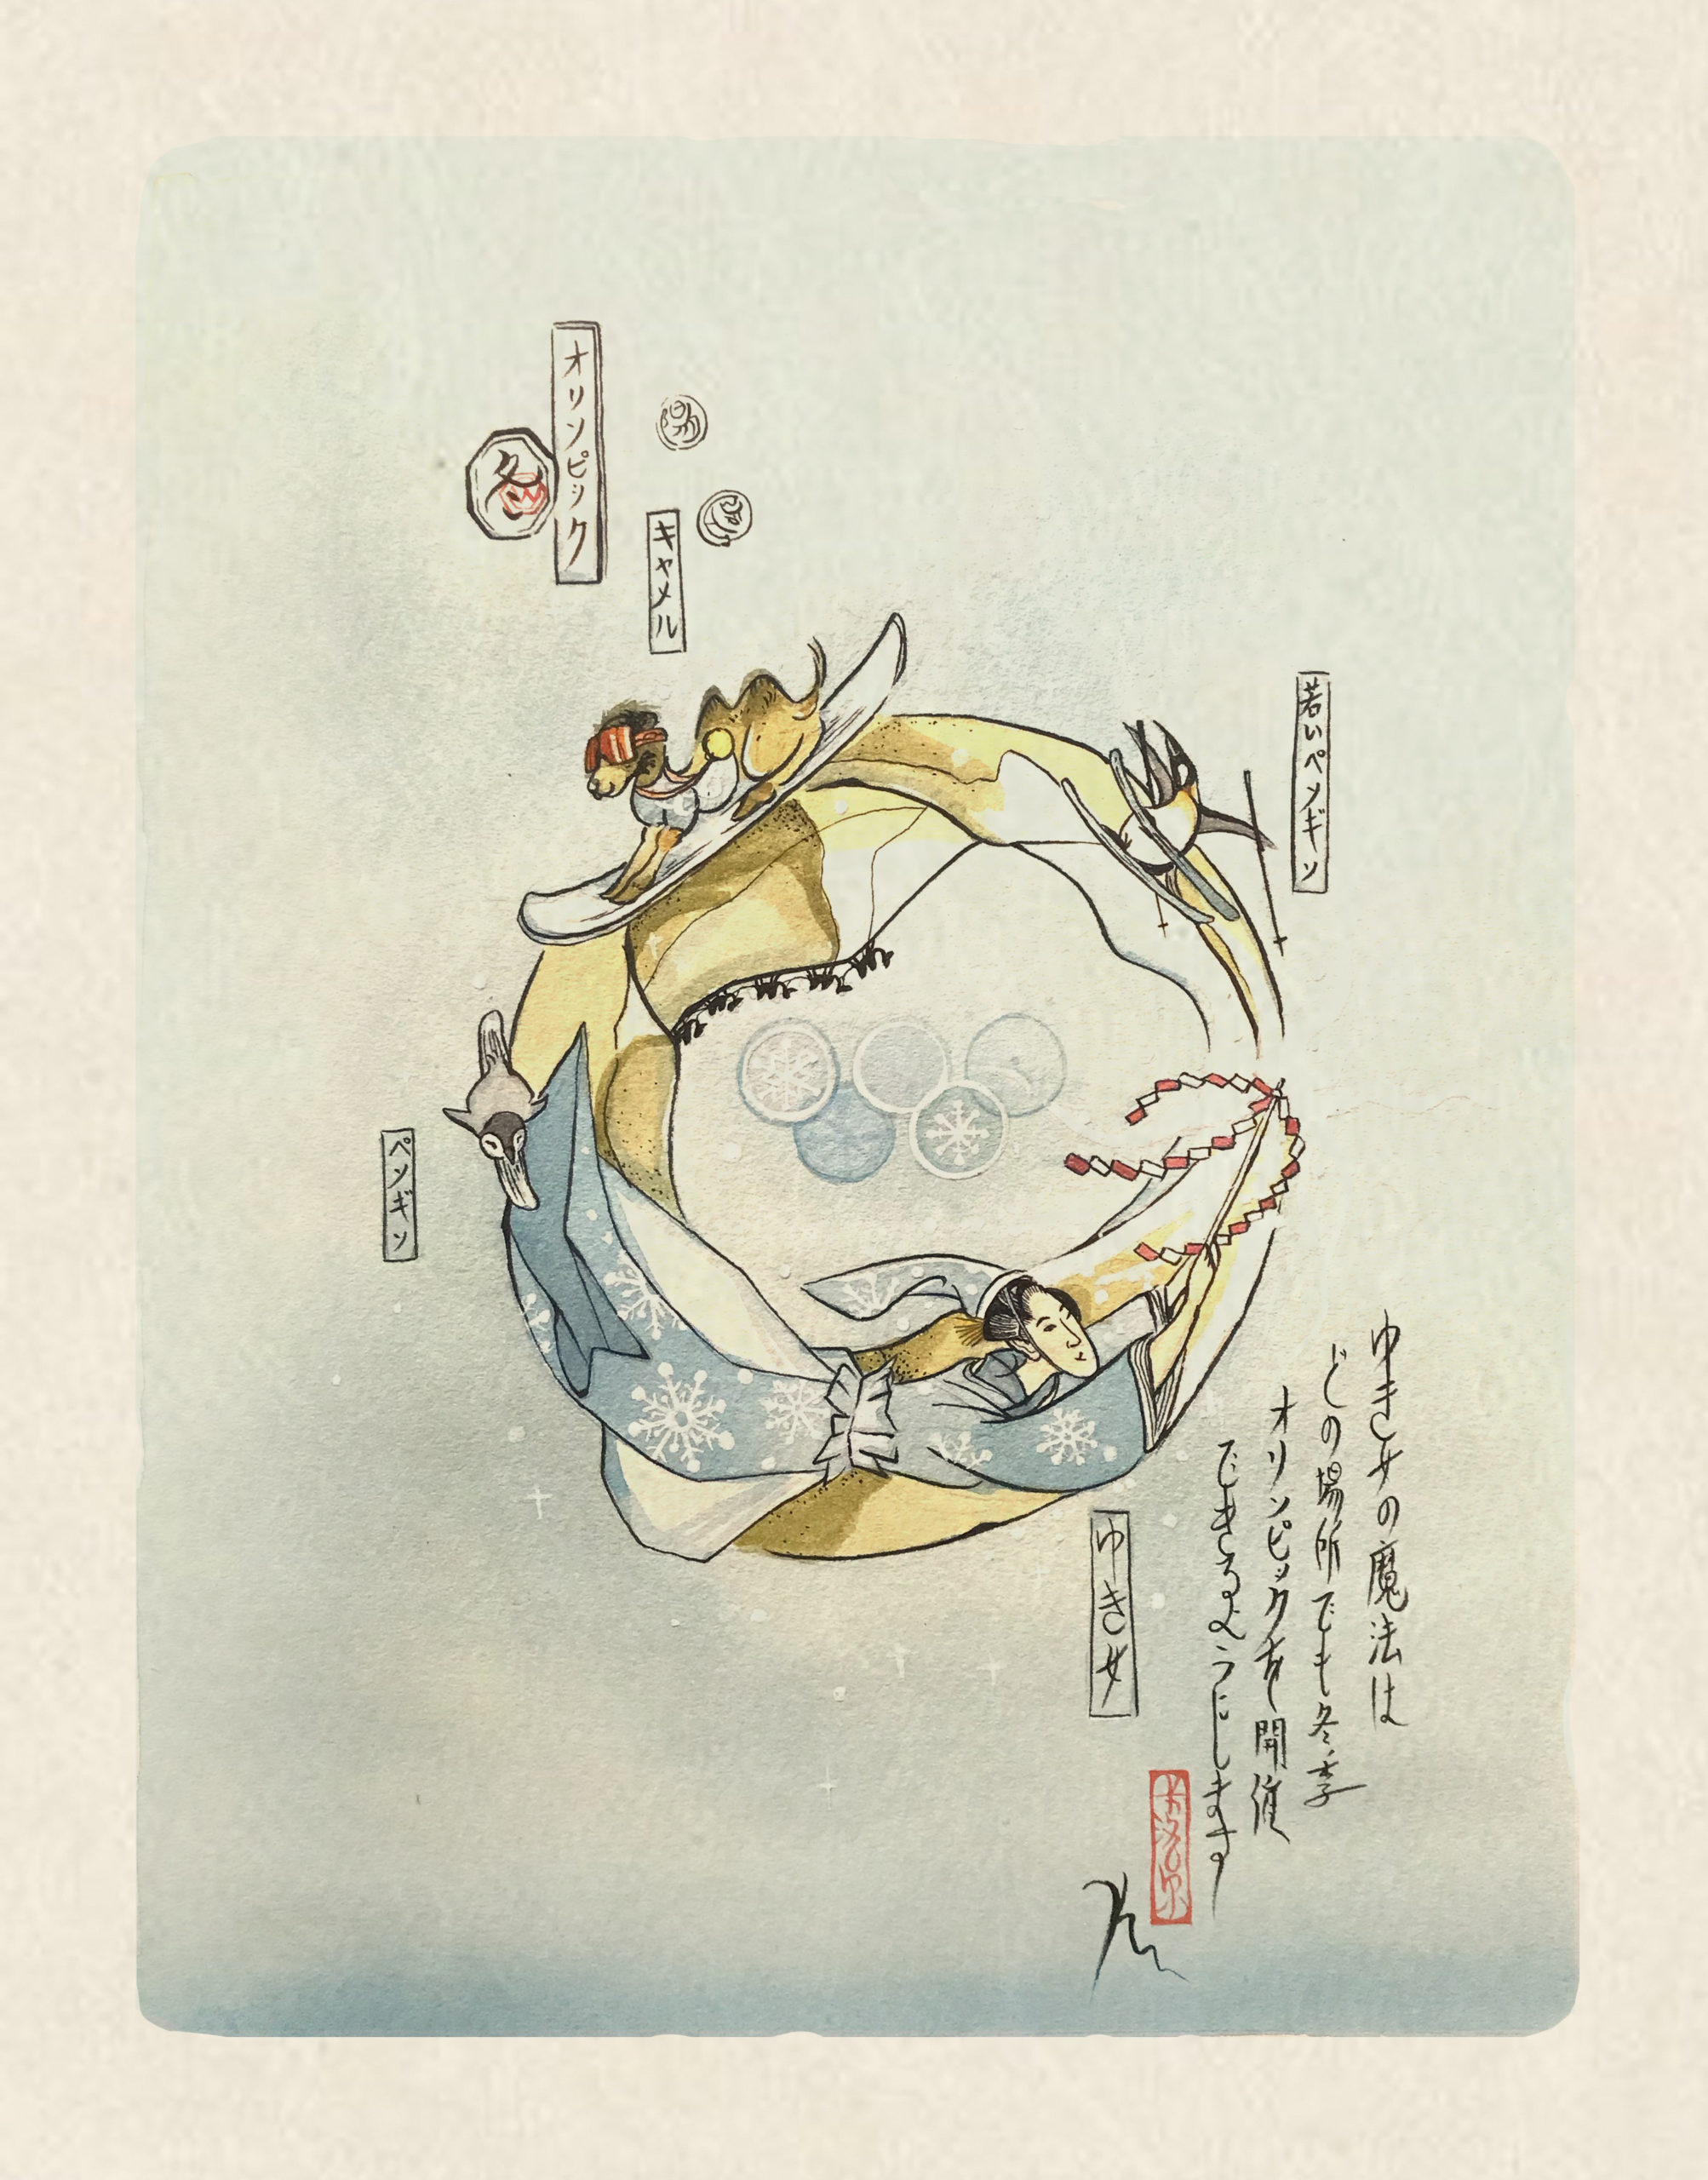 オリンピック
冬
キャメル
若いペンギン
ペンギン
ゆき女
ゆき女の魔法は
どの場所でも冬季
オリンピックを開催
できるようにします